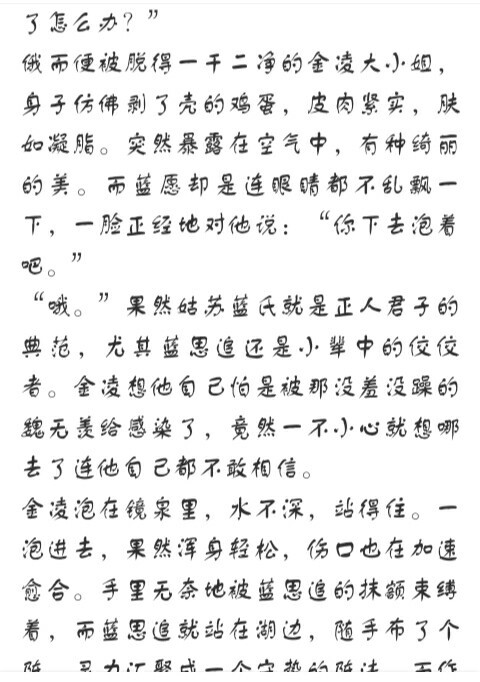 了怎么办？”
俄而便被脱得一干二净的金凌大小姐，
身子仿佛剥了壳的鸡蛋，皮肉紧实，肤
如凝脂。突然暴露在空气中，有种绮丽
的美。而蓝愿却是连眼睛都不乱飘一
下，一脸正经地对他说：“你下去泡着
吧。”
“哦。”果然姑苏蓝氏就是正人君子的
典范，尤其蓝思追还是小辈中的佼佼
者。金凌想他自己怕是被那没羞没躁的
魏无羡给感染了，竟然一不小心就想哪
去了连他自己都不敢相信。
金凌泡在镜泉里，水不深，站得住。一
泡进去，果然浑身轻松，伤口也在加速
愈合。手里无奈地被蓝思追的抹额束缚
着，而蓝思追就站在湖边，随手布了个
阵，灵力汇聚成一个守势的阵法，而作